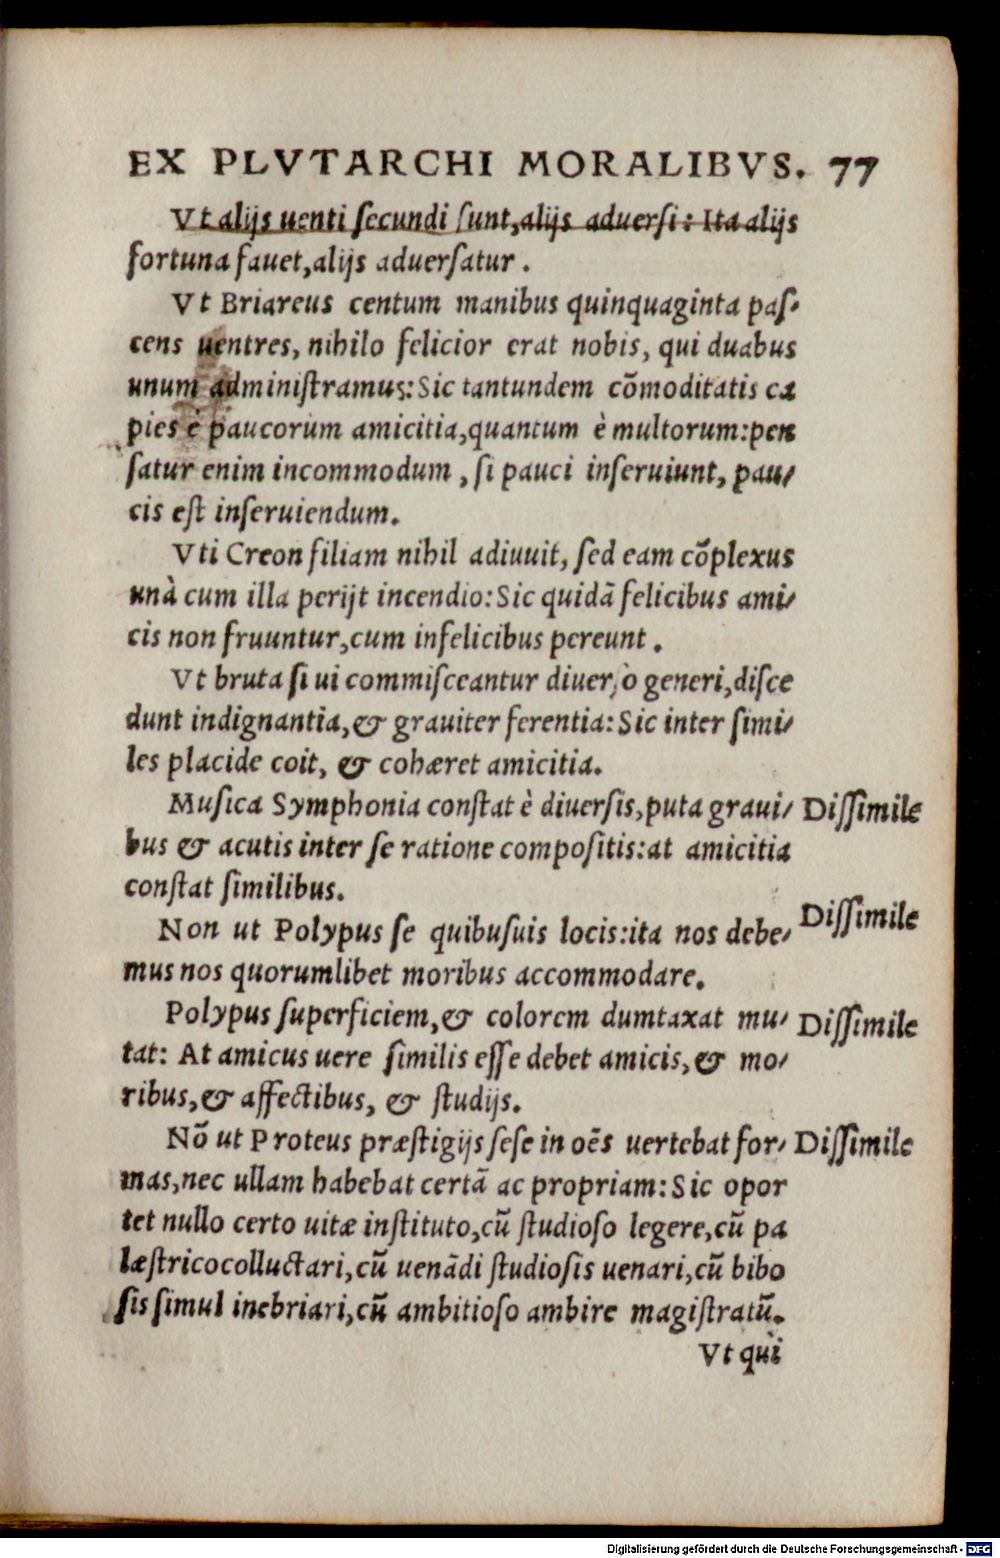 EX PLVTARCHI MORALIBVS. 77
Vt alijs uenti ſecundi ſunt,alijs aduerſi: Ita alijs
fortuna fauet,alijs aduerſatur.
Vt Briareus centum manibus quinquaginta paſ-
cens uentres, nihilo felicior erat nobis, qui duabus
unum adminiſtramus:Sic tantundem cōmoditatis ca
pies è paucorum amicitia,quantum è multorum:pen
ſatur enim incommodum, ſi pauci inſeruiunt, pau-
cis eſt inſeruiendum.
Vti Creon filiam nihil adiuuit, ſed eam cōplexus
unà cum illa perijt incendio:Sic quidā felicibus ami-
cis non fruuntur,cum infelicibus pereunt.
Vt bruta ſi ui commiſceantur diuerſo generi,diſce
dunt indignantia,& grauiter ferentia:Sic inter ſimi-
les placide coit, & cohæret amicitia.
Muſica Symphonia conſtat è diuerſis,puta graui- Diſſimile
bus & acutis inter ſe ratione compoſitis:at amicitia
conſtat ſimilibus.
Non ut Polypus ſe quibuſuis locis:ita nos debe- Diſſimile
mus nos quorumlibet moribus accommodare.
Polypus ſuperficiem,& colorem dumtaxat mu- Diſſimile
tat: At amicus uere ſimilis eſſe debet amicis,& mo-
ribus,& affectibus, & ſtudijs.
Nō ut Proteus præſtigijs ſeſe in oēs uertebat for- Diſſimile
mas,nec ullam habebat certā ac propriam:Sic opor
tet nullo certo uitæ inſtituto,cū ſtudioſo legere,cū pa
læſtrico colluctari,cū uenādi ſtudioſis uenari,cū bibo
ſis ſimul inebriari,cū ambitioſo ambire magiſtratū.
Vt qui
Digitalisierung gefördert durch die Deutsche Forschungsgemeinschaft - DFG